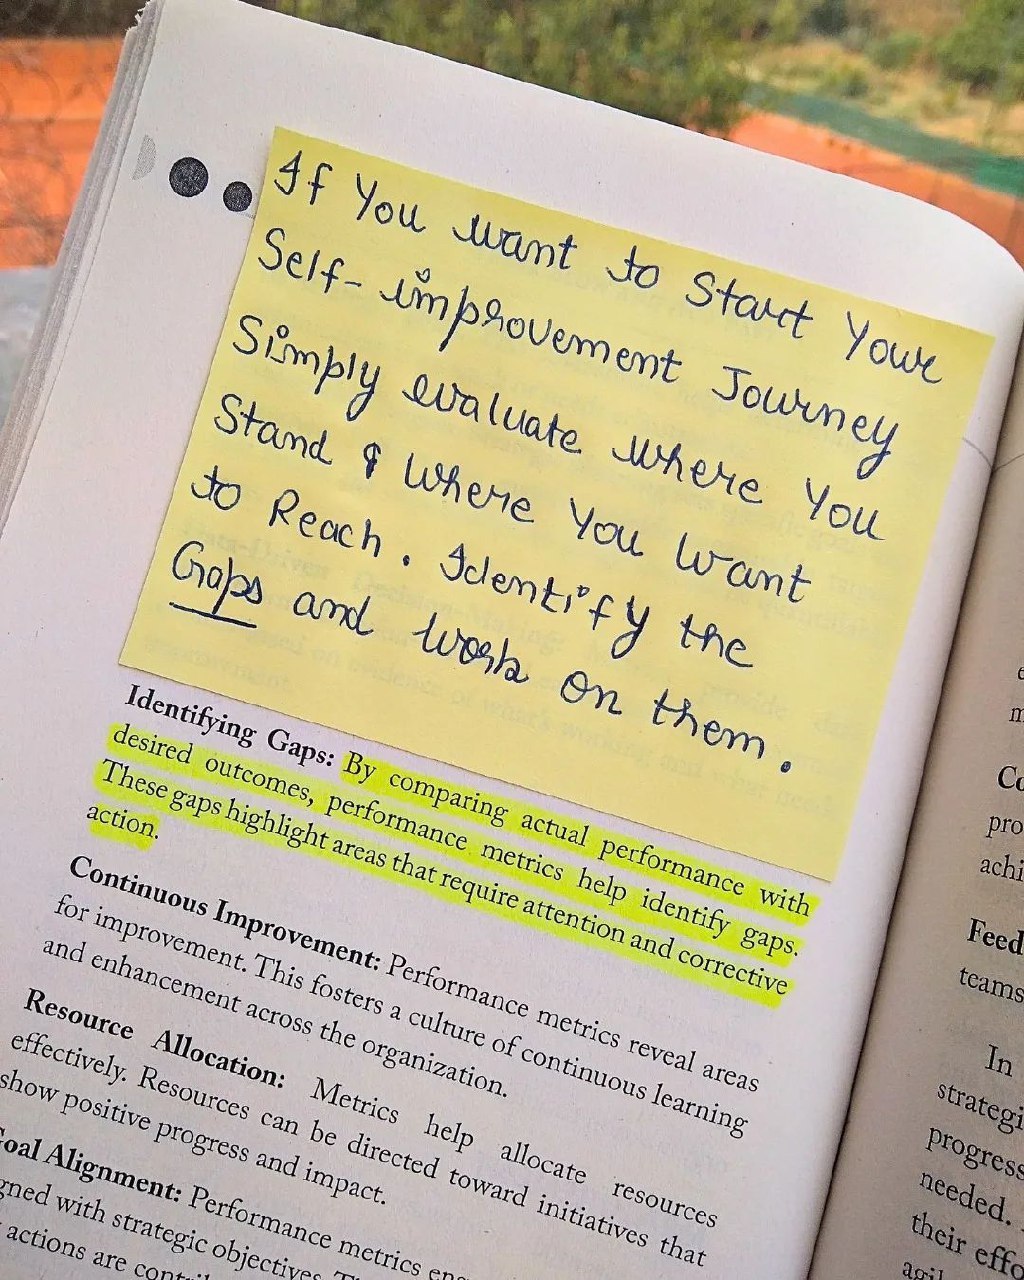 If You want to Start Your
Self-improvement Journey
Simply evaluate where You
Stand & Where You Want
to Reach. Identify the
Gaps and work on them.
Identifying Gaps: By comparing actual performance with
desired outcomes, performance metrics help identify gaps.
These gaps highlight areas that require attention and corrective
action.
Continuous Improvement: Performance metrics reveal areas
for improvement. This fosters a culture of continuous learning
and enhancement across the organization.
Resource Allocation: Metrics help allocate resources
effectively. Resources can be directed toward initiatives that
show positive progress and impact.
Goal Alignment: Performance metrics
gned with strategic objectives.
actions are
Co
pro
achi
Feed
teams
In
strategi
progress
needed.
their effo
agil